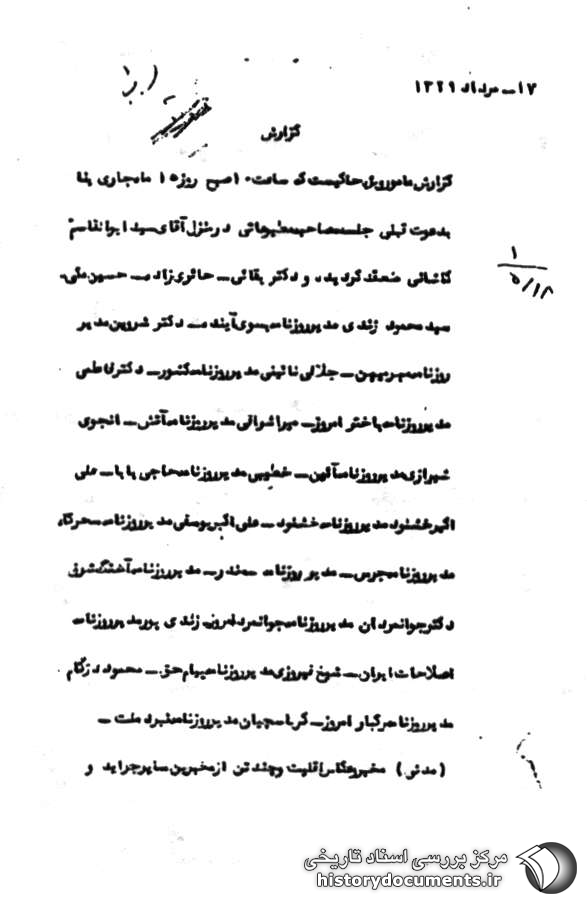 ۱۷ــ مرداد ۱۳۲۹
گزارش
گزارش مامور ویژه حاکیست که ساعت ۱۰ صبح روز ۱۵ ماه جاری بنا
بدعوت قبلی جلسه مصاحبه مطبوعاتی در منزل آقای سید ابوالقاسم
کاشانی منعقد گردیده و دکتر بقائی ــ حائری زاده ــ حسین مکی.
سید محمود زندی مدیر روزنامه بسوی آینده ــ دکتر شروین مدیر
روزنامه مهر میهن ــ جلالی نائینی مدیر روزنامه کشور ــ دکتر فاطمی
مدیر روزنامه باختر امروز ــ میراشرافی مدیر روزنامه آتش ــ انجوی
شیرازی مدیر روزنامه آئین ــ خطیبی مدیر روزنامه حاجی بابا ــ علی
اکبر خشنود مدیر روزنامه خشنود ــ علی اکبر یوسفی مدیر روزنامه سحرگاه
مدیر روزنامه جرس ــ مدیر روزنامه سمندر ــ مدیر روزنامه آشفتگ شرق
دکتر جوانمردان مدیر روزنامه جوانمرد امروز زندی پور مدیر روزنامه
اصلاحات ایران ــ شیخ نوروزی مدیر روزنامه پیام حق ــ محمود دژکام
مدیر روزنامه رگبار امروز ــ کرباسچیان مدیر روزنامه نبرد ملت ــ
(مدنی) مخبر و عکاس اقلیت و چند تن از مخبرین سایر جراید و
۱
۵/۱۸
مرکز بررسی اسناد تاریخی
historydocuments.ir